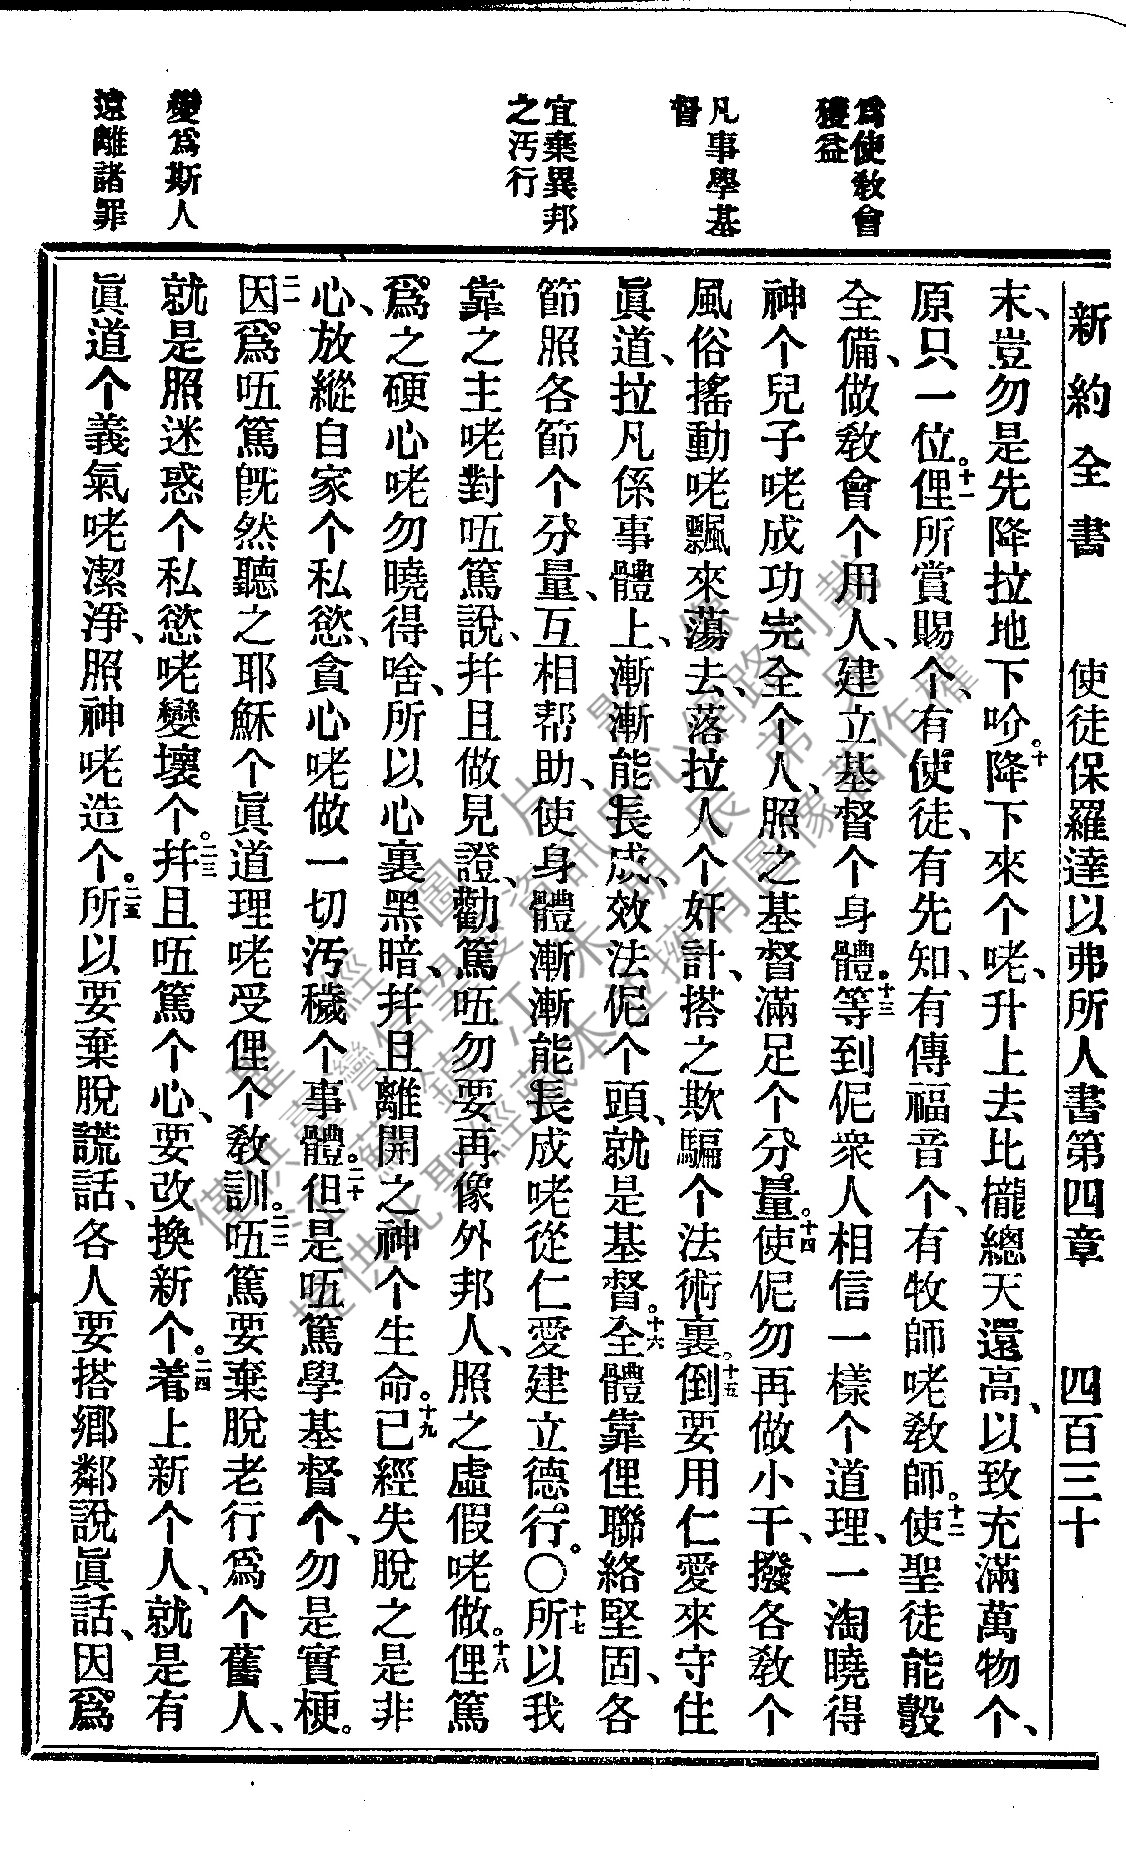 新約全書 使徒保羅達以弗所人書第四章 四百三十
爲使教會
獲益
凡事學基
督
宜棄異邦
之汚行
變爲斯人
遠離諸罪
末、豈勿是先降拉地下吤。十降下來个咾、升上去比櫳總天還高、以致充滿萬物个、
原只一位。十一俚所賞賜个、有使徒、有先知、有傳福音个、有牧師咾教師。十二使聖徒能彀
全備、做教會个用人、建立基督个身體。十三等到伲衆人相信一樣个道理、一淘曉得
神个兒子咾成功完全个人、照之基督滿足个分量。十四使伲勿再做小干、撥各教个
風俗搖動咾飄來蕩去、落拉人个奸計、搭之欺騙个法術裏。十五倒要用仁愛來守住
眞道、拉凡係事體上、漸漸能長成、效法伲个頭、就是基督。十六全體靠俚聯絡堅固、各
節照各節个分量、互相帮助、使身體漸漸能長成咾從仁愛建立德行。〇十七所以我
靠之主咾對㑚篤說、幷且做見證、勸篤㑚勿要再像外邦人、照之虛假咾做。十八俚篤
爲之硬心咾勿曉得啥、所以心裏黑暗、幷且離開之神个生命。十九已經失脫之是非
心、放縱自家个私慾、貪心咾做一切汚穢个事體。二十但是㑚篤學基督个、勿是實梗。
二一因爲㑚篤旣然聽之耶穌个眞道理咾受俚个教訓。二二㑚篤要棄脫老行爲个舊人、
就是照迷惑个私慾咾變壞个。二三幷且㑚篤个心、要改換新个。二四着上新个人、就是有
眞道个義氣咾潔淨、照神咾造个。二五所以要棄脫謊話、各人要搭鄉鄰說眞話、因爲